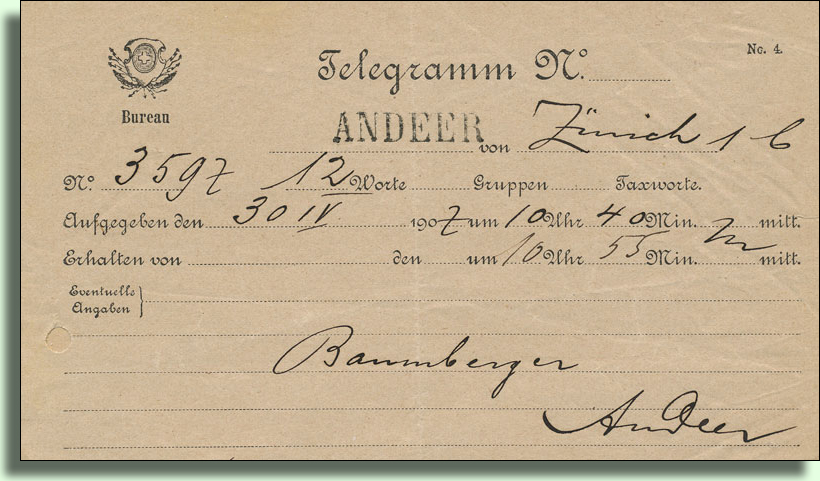 No. 4.
Telegramm No.
Bureau
ANDEER von Zürich 1 6
No. 3597 12 Worte Gruppen Taxworte.
Aufgegeben den 30 IV 1907 um 10 Uhr 40 Min. mitt.
Erhalten von den um 10 Uhr 55 Min. mitt.
Eventuelle
Angaben
Baumberger
Andeer